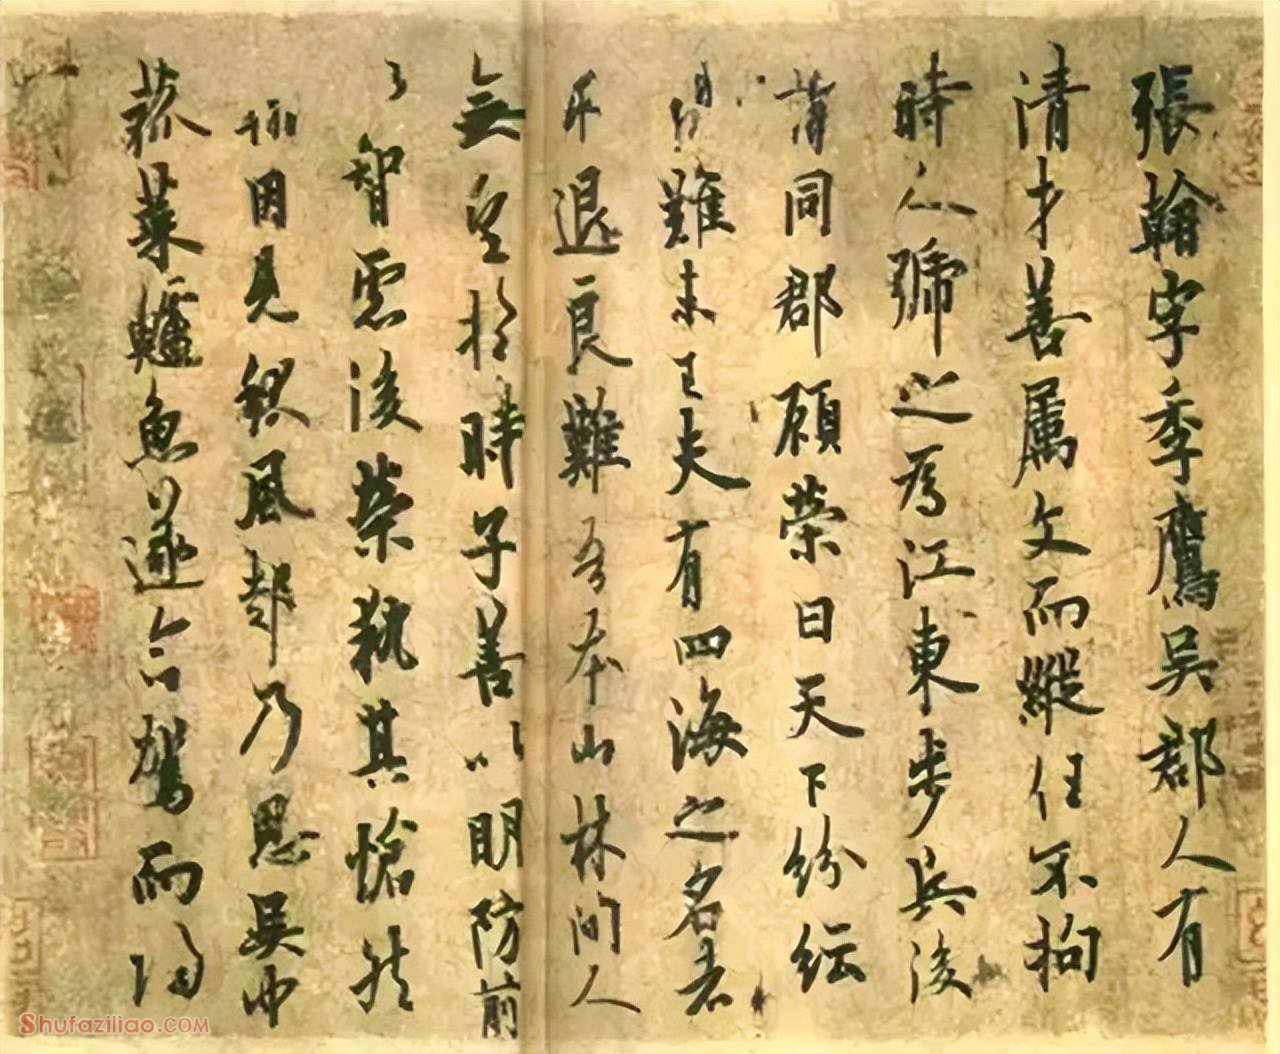 張翰字季鷹吳郡人有
清才善属文而縱任不拘
時人號之爲江東步兵後
謂同郡顧榮曰天下紛紜
難未已夫有四海之名者
求退良難吾本山林間人
無望於時子善以明防前
以智慮後榮執其愴然
翰因見秋風起乃思吳中
菰菜鱸魚遂命駕而歸
Shufaziliao.COM